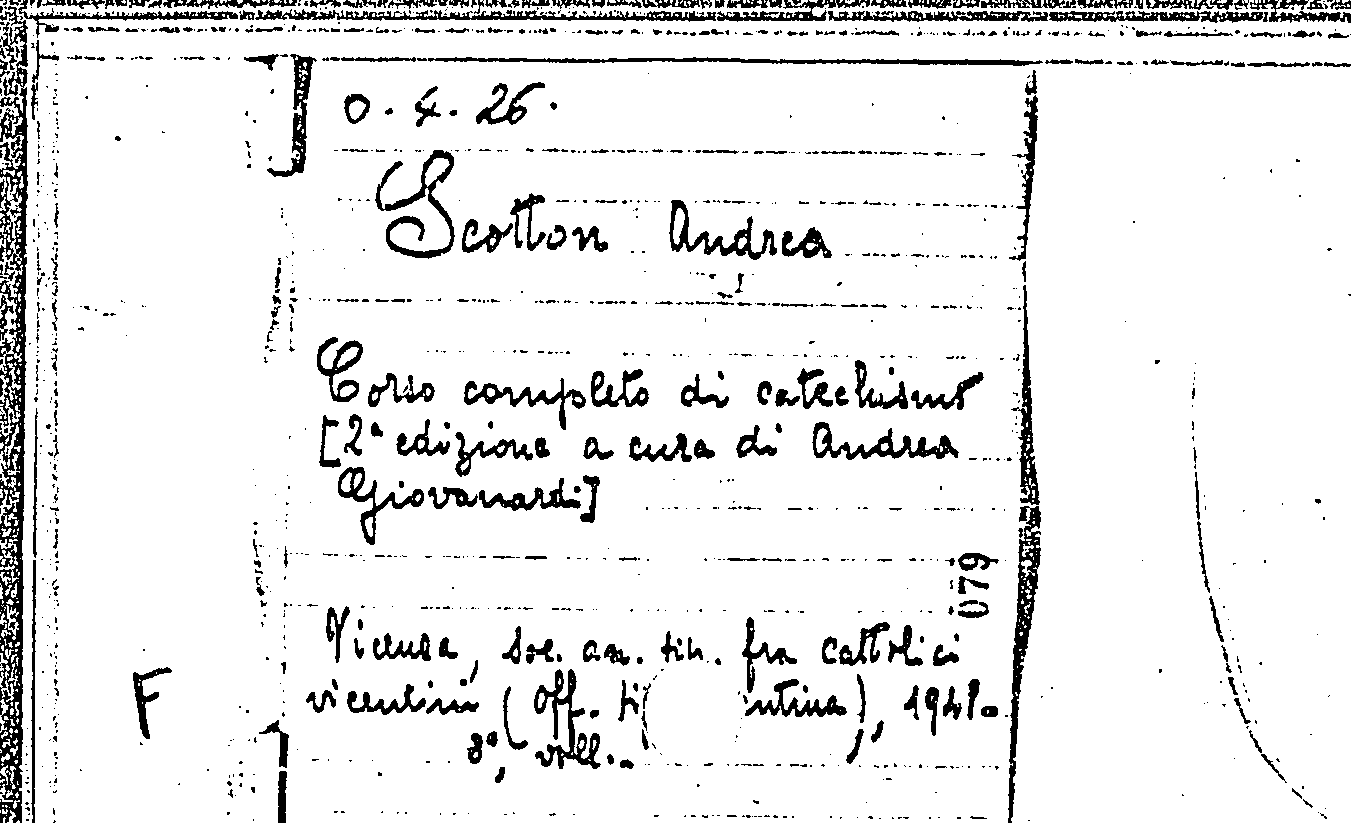 0. 4. 26.
Scotton Andrea
Corso completo di catechismo
[2ª edizione a cura di Andrea
Giovanardi]
079
Vicenza, Soc. an. tip. fra cattolici
F
vicentini (Off. ti ntina), 1948-
8º, voll..